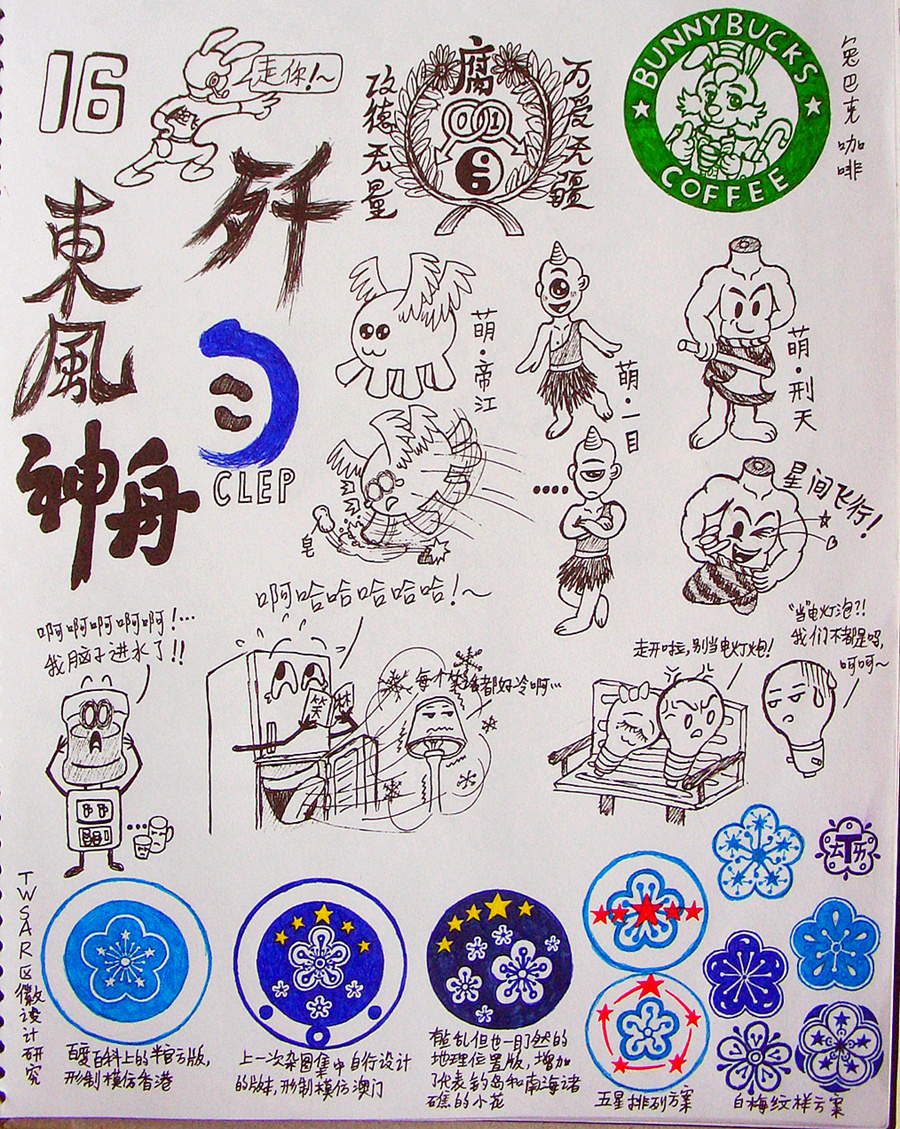 16
走你!~
攻德无量
腐
万爱无疆
BUNNYBUCKS
COFFEE
兔巴克咖啡
東風
歼
神舟
CLEP
萌·帝江
萌·一目
萌·刑天
皂
星间飞行!
啊啊啊啊啊啊!...
我脑子进水了!!
啊哈哈哈哈哈哈!~
笑
每个笑话都好冷啊...
走开啦,别当电灯炮!
“当”电灯泡?!
我们不都是吗,
呵呵~
TWSAR区徽设计研究
百度百科上的半官方版,
形制模仿香港
上一次杂图集中自行设计
的版本,形制模仿澳门
杂乱但也一目了然的
地理位置版,增加
了代表钓岛和南海诸
礁的小花
五星排列方案
白梅纹样方案